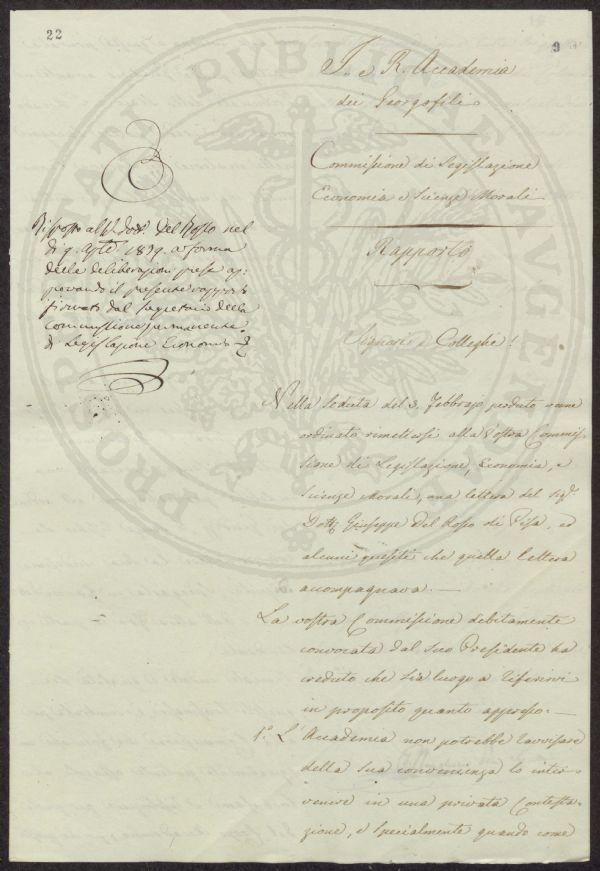 22
9
I. e R. Accademia
dei Georgofili
Commissione di Legislazione
Economia e Scienze Morali
Rapporto
Signori e Colleghi!
Risposto al Sr. Dott. Del Rosso nel
dì 9. 1839. a forma
delle deliberazioni prese ap:
provando il presente rapporto
firmato dal segretario della
commissione permanente
di Legislazione Economia
Nella seduta del 3. Febbrajo perduto venne
ordinato rimettersi alla Vostra Commis-
sione di Legislazione, Economia, e
Scienze Morali, una lettera del Sig.
Dott. Giuseppe Del Rosso di Pisa, ed
alcuni quesiti che quella lettera
accompagnava. —
La vostra Commissione debitamente
convocata dal suo Presidente ha
creduto che sia luogo a riferirvi
in proposito quanto appresso: —
1.º L'Accademia non potrebbe ravvisare
della sua convenienza lo inter-
venire in una privata Contesta-
zione, e specialmente quando come
PROSPERITATI PUBLICAE AUGENDAE